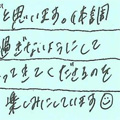 と思います。体調
過ぎないようにして
ってきてくださるのを
楽しみにしています☺